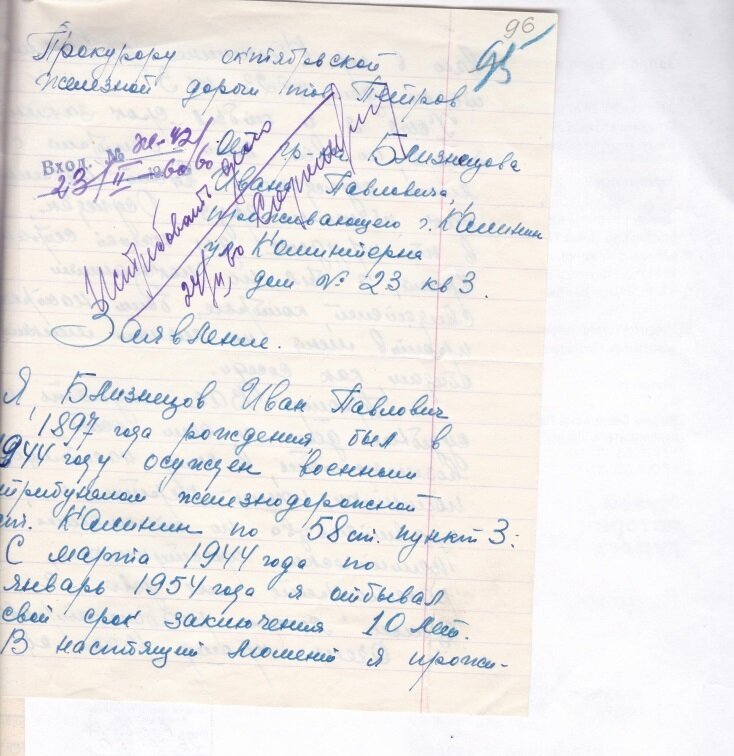 96
95
Прокурору октябрьской
железной дороги тов Петров
Вход. №
23/II-60
от гр-на Близнецова
Ивана Павловича,
проживающего г. Калинин
Коминтерна
дом № 23 кв 3.
Истребовать дело
24/II 60
Заявление.
Я, Близнецов Иван Павлович
1897 года рождения был в
1944 году осужден военным
трибуналом железнодорожной
ст. Калинин по 58 ст. пункт 3:
С марта 1944 года по
январь 1954 года я отбывал
свой срок заключения 10 лет.
В настоящий момент я прожи-